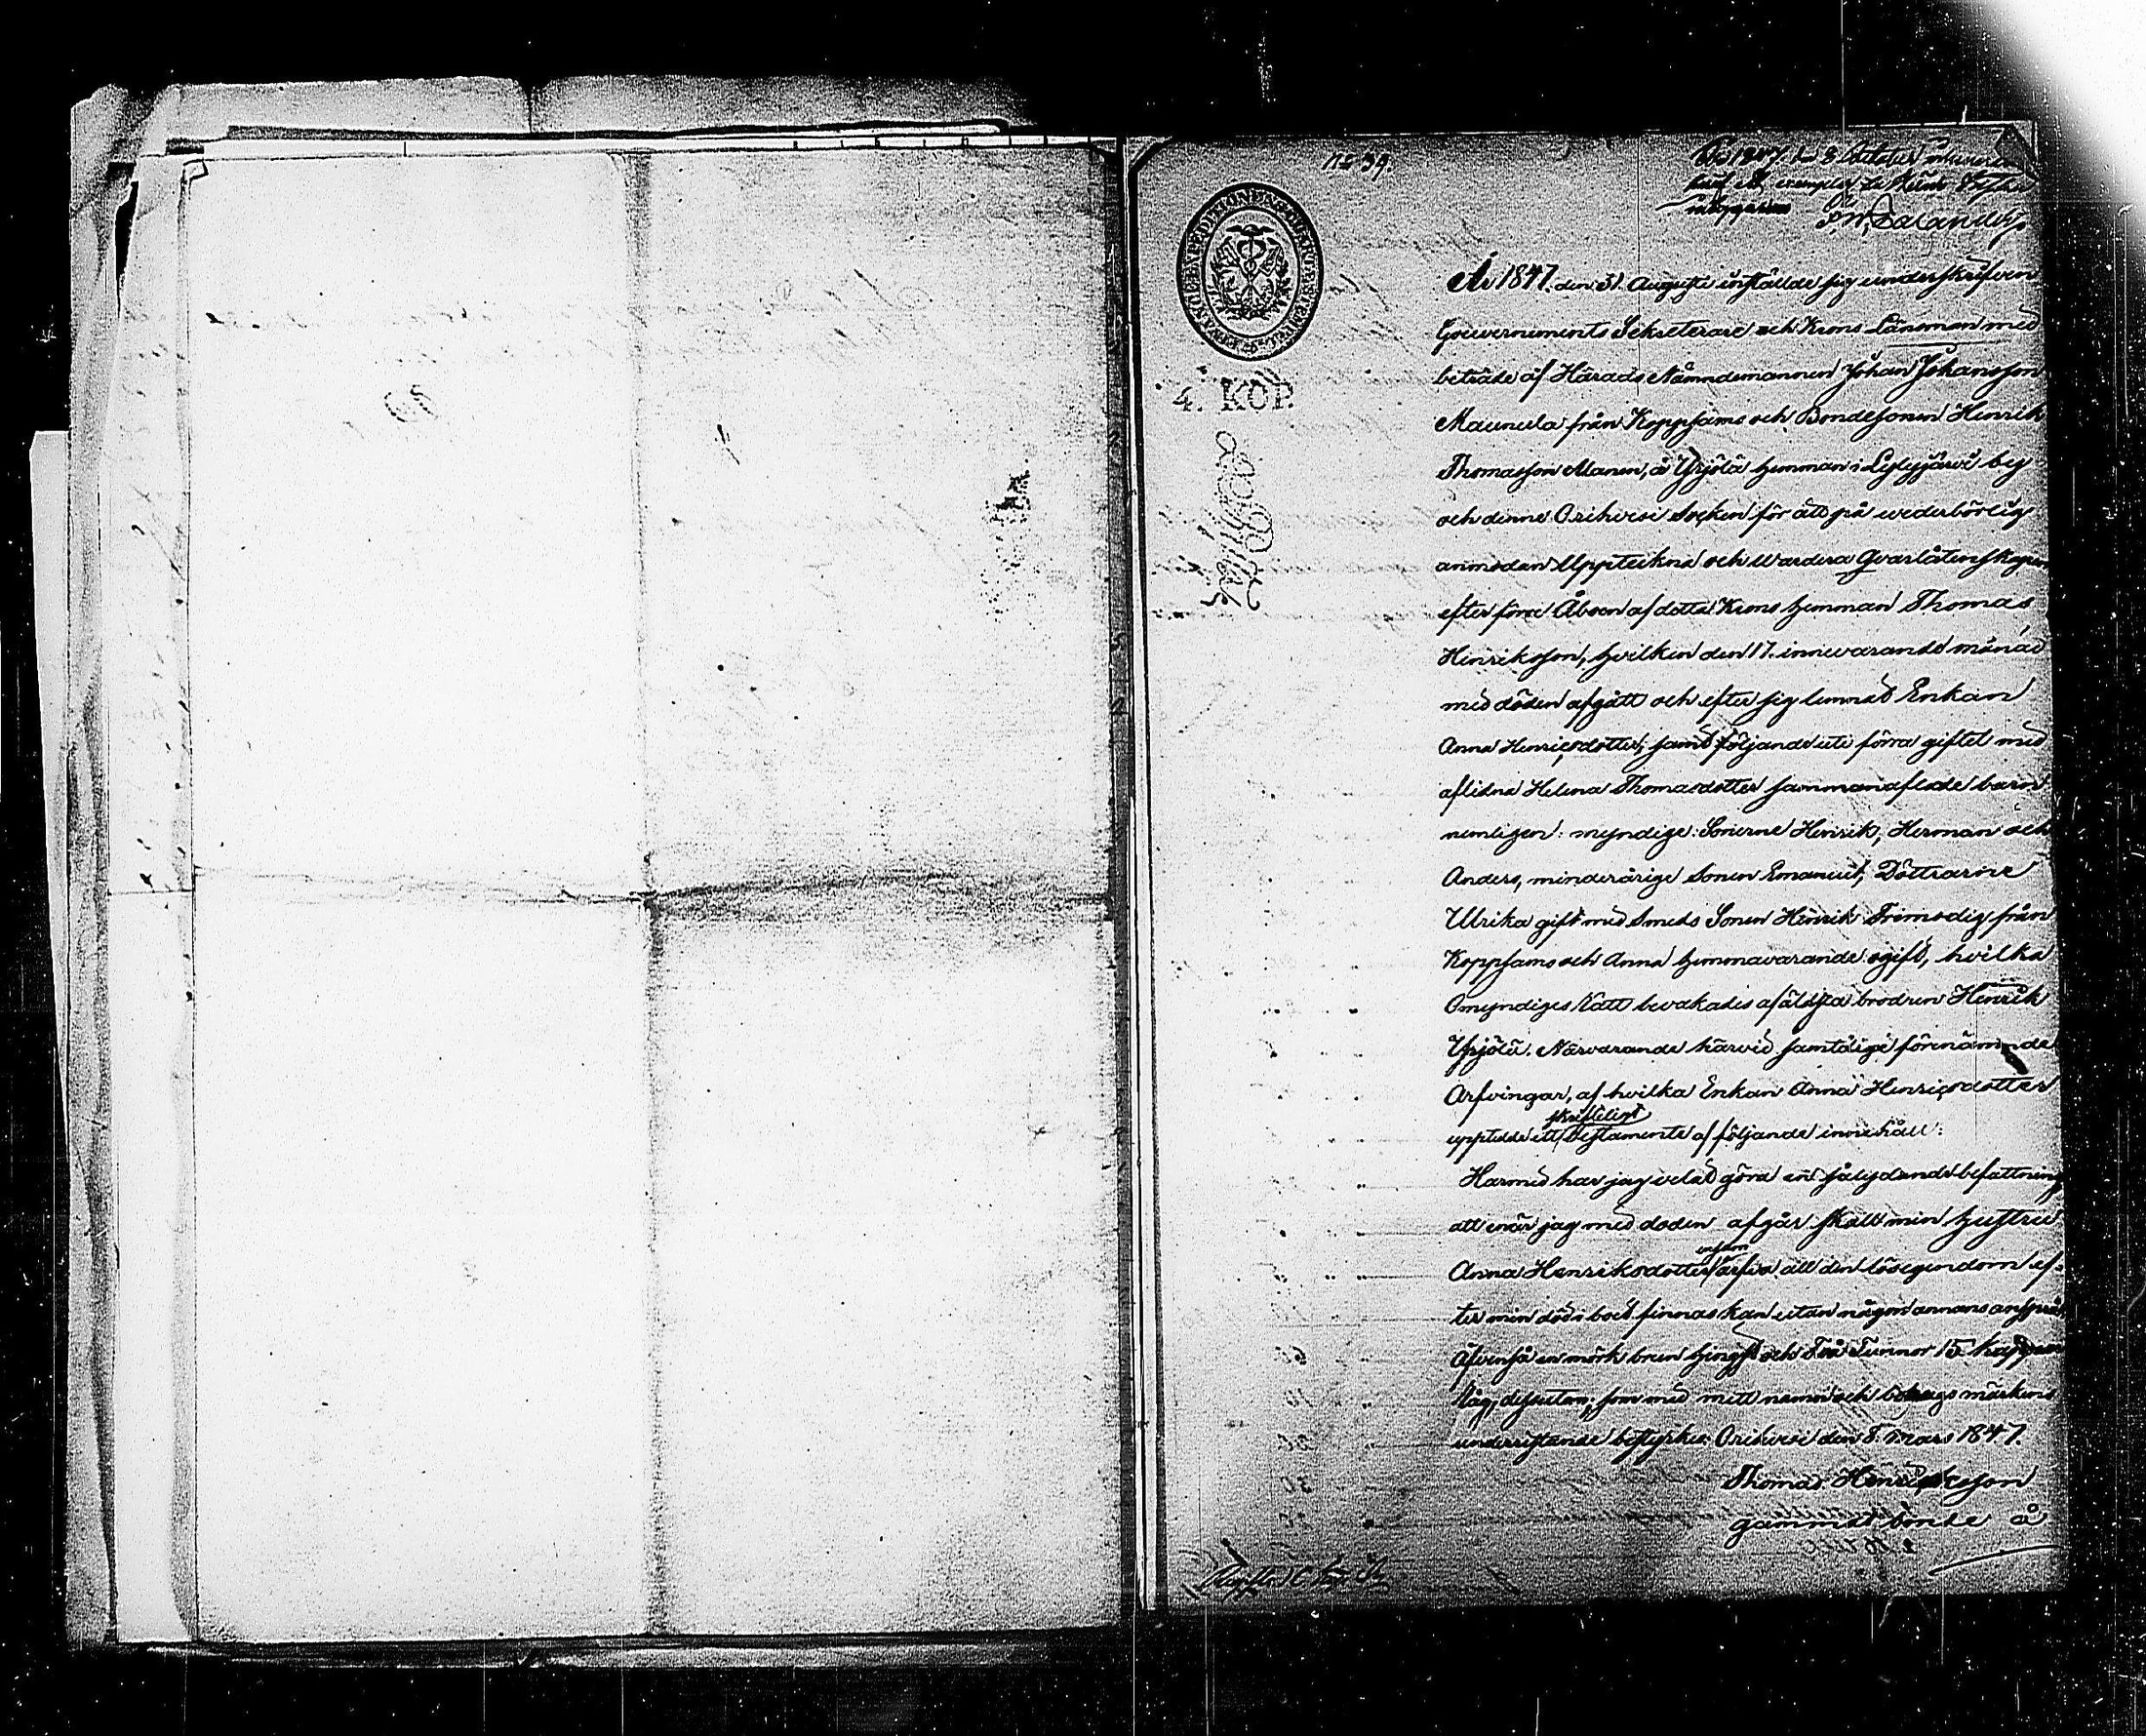 No 39.
År 1847. den 8 October
P. W. Salander
FINANCEEXPEDITIONENS CHARTÆ
4. KOP.
År 1847. den 31. Augusti inställde sig underskrifven
Gouvernements Sekreterare och Krono Länsman med
biträde af Härads Nämndemannen Johan Johansson
Maunula från Koppsamo och Bondesonen Henrik
Thomasson Alanen, å Yrjölä hemman i Lyly järvi by
och denne Orihvesi Socken för att på wederbörlig
anmodan Uppteckna och wärdera Qvarlåtenskapen
efter förre Åboen af detta Krono hemman Thomas
Henriksson, hvilken den 17. innevarande månad
med döden afgått och efter sig lemnat Enkan
Anna Henricsdotter, samt följande uti förra giftet med
aflidna Helena Thomasdotter sammanaflade barn
nemligen: myndige: Sönerne Henrik, Herman och
Anders, minderårige Sonen Emanuel, Döttrarne
Ulrika gift med Smeds Sonen Henrik Frimodig från
Koppsamo och Anna hemmavarande ogift, hvilka
Omyndiges Rätt bevakades af äldsta brodren Henrik
Yrjölä. Närvarande härvid samtlige förenämnde
Arfvingar, af hvilka Enkan Anna Henricsdotter
skrifteligt
upptedde ett testamente af följande innehåll:
Härmed har jag velat göra en sålydande befattning
att när jag med döden afgår skall min hustru
ensam
Anna Henriksdotter ärfva all den lösegendom ef-
ter min död i boet finnas kan utan någon annans anspråk
Äfvenså en mörk brun hingst och Två Tunnor 15 kappar
Råg, dessutom; som med mitt namn och bomärkens
underristande bestyrkes. Orihvesi den 8. Mars 1847.
Thomas Henriksson
gammal bonde å